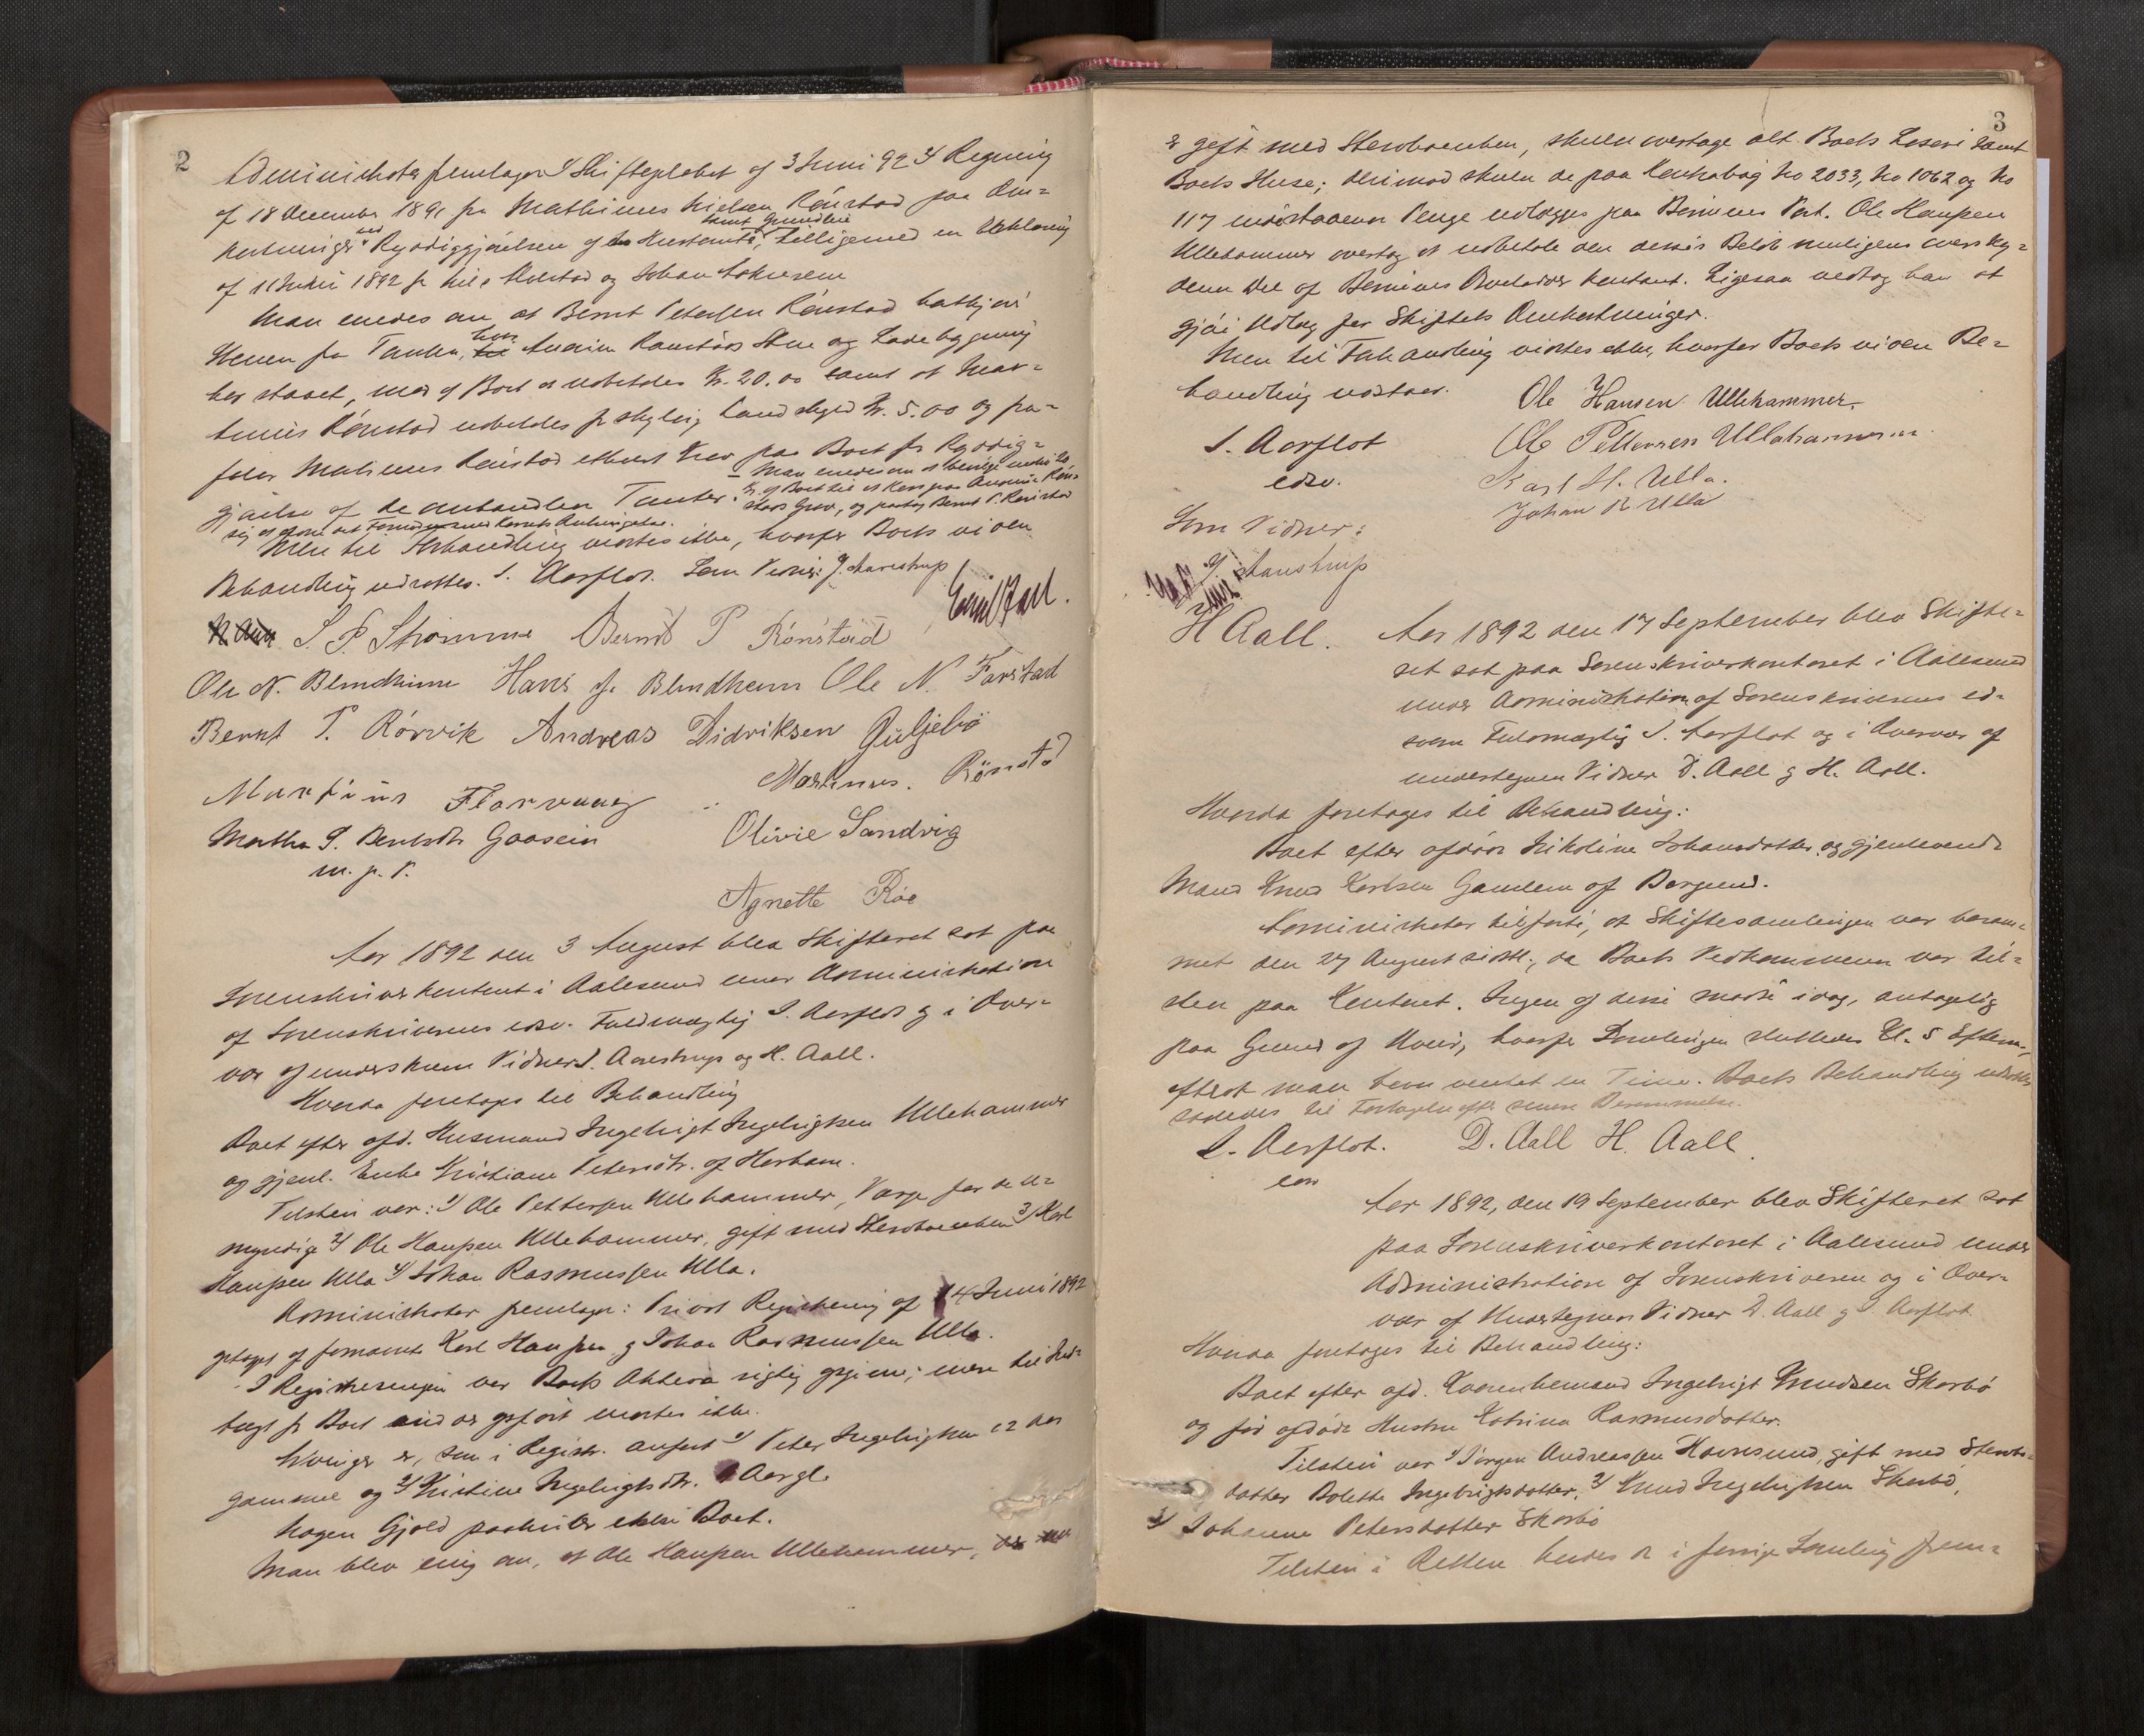 2
Administrator fremlagde 1/ Skifteplabat af 3 Juni 92 2/ Regning
af 18 December 1891 fra Mathinus Nielsen Rönstad paa Om-
kostninger ved Ryddiggjörelsen af Hustomte, samt Grundleie tilligemed en Erklæring
af 11 Juni 1892 fra Nils Rolstad og Johan
Man enedes om at Bernt Petersen Rönstad
Stenen fra Tomten, hvor Anain Rönstads Stue og Ladebygning
har staaet, mod af Boet at udbetales Kr. 20.00 samt at Mar-
tinus Rönstad udbetales for skyldig Landskyld Kr. 5.00 og fra-
falder Matinus Rönstad ethvert Krav paa Boet for Ryddig-
gjörelse af de omhandlede Tomter. Man enedes om at bevilge indtil 20
Kr. af Boet til et Kors paa Anonine Rön-
stads Grav, og paatog Bernt P. Rönstad
sig at drage Korsets Anbringelse.
Mere til Forhandling vidstes ikke, hvorfor Boets videre
Behandling udsattes. S. Aarflot. Som Vidner: J. Aarestrup
Emil Aall.
S. P. Strömme Bernt P Rönstad
Ole N. Blindheim Hans J. Blindheim Ole N. Farstad
Bernt P. Rörvik Andreas Didriksen Guljebö
Martinus Flarvaag Martinus. Rönstad
Martha P. Berntsdtr Gaasein Olivie Sandvig
m. p. P.
Agnette Röe
Aar 1892 den 3 August blev Skifteret sat paa
Sorenskriverkontoret i Aalesund under Administration
af Sorenskriverens edsv. Fuldmægtig S. Aarflot og i Over-
vær af underskrevne Vidner J. Aarestrup og H. Aall.
Hvorda foretoges til Behandling
Boet efter afd. Husmand Ingebrigt Ingebrigtsen Ullehammer
og gjenl. Enke Kristiane Petersdtr. af Harham.
Tilstede var: 1/ Ole Pettersen Ullehammer, Værge for de u-
myndige 2/ Ole Hansen Ullehammer, gift med Stervboenken 3/ Karl
Hansen Ulla 4/ Johan Rasmussen Ulla.
Administrator fremlagde: Privat Registrering af 14 Juni 1892
optaget af fornævnte Karl Hansen og Johan Rasmussen Ulla.
I Registreringen var Boets Aktiva rigtig opgivne; mere til Ind-
tægt for Boet end der opfört vidstes ikke.
Arvinger er, som i Registr. anfört 1/ Peter Ingebrigtsen 12 Aar
gammel og 2/ Kristine Ingebrigtsdtr. Aar gl.
Nogen Gjæld paahviler ikke Boet.
Man blev enig om, at Ole Hansen Ullehammer, der nu
3
er gift med Stervboenken, skulde overtage alt Boets Lösöre samt
Boets Huse; derimod skulde de paa Kontrabog No 2033, No 1062 og No
117 indestaaende Penge udlægges paa Börnenes Part. Ole Hansen
Ullehammer overtog at udbetale den dennes Belöb muligens overskyd-
dende Del af Börnenes Arvelodder kontant. Ligesaa vedtog han at
gjöre Udlæg for Skiftets Omkostninger.
Mere til Forhandling vidstes ikke, hvorfor Boets videre Be-
handling udstaar.
Ole Hansen Ullehammer.
S. Aarflot
edsv.
Ole Pettersen Ullahammer
Karl H. Ulla.
Johan R Ulla
Som Vidner:
J. Aarestrup
H Aall.
Aar 1892 den 17 September blev Skifte-
ret sat paa Sorenskriverkontoret i Aalesund
under Administration af Sorenskriverens ed-
svorne Fuldmægtig S. Aarflot og i Overvær af
undertegnede Vidner D. Aall og H. Aall.
Hvorda foretoges til Behandling:
Boet efter afdöde Nikoline Johansdatter og gjenlevende
Mand Knud Karlsen Gamlem af Borgund.
Administrator tilförte, at Skiftesamlingen var beram-
met den 27 August sidstl., da Boets Vedkommende var til-
stede paa Kontoret. Ingen af disse mödte idag, antagelig
paa Grund af Uveir, hvorfor Samlingen sluttedes Kl. 5 Efterm.,
efterat man havde ventet en Time. Boets Behandling udsattes
saaledes til Foretagelse efter senere Berammelse.
S. Aarflot. D. Aall H. Aall.
edsv
Aar 1892, den 19 September blev Skifteret sat
paa Sorenskriverkontoret i Aalesund under
Administration af Sorenskriveren og i Over-
vær af Undertegnede Vidner D. Aall og S. Aarflot
Hvorda foretoges til Behandling:
Boet efter afd. Ingebrigt Knudsen Skorbö
og för afdöde Hustru Katrina Rasmusdatter.
Tilstede var 1/ Jörgen Andreassen Havnsund, gift med Stervbo-
datter Bolette Ingebrigtsdatter, 2/ Knud Ingebrigtsen Skorbö,
3/ Johanne Petersdatter Skorbö
Tilstede i Retten havdes de i forrige Samling frem-